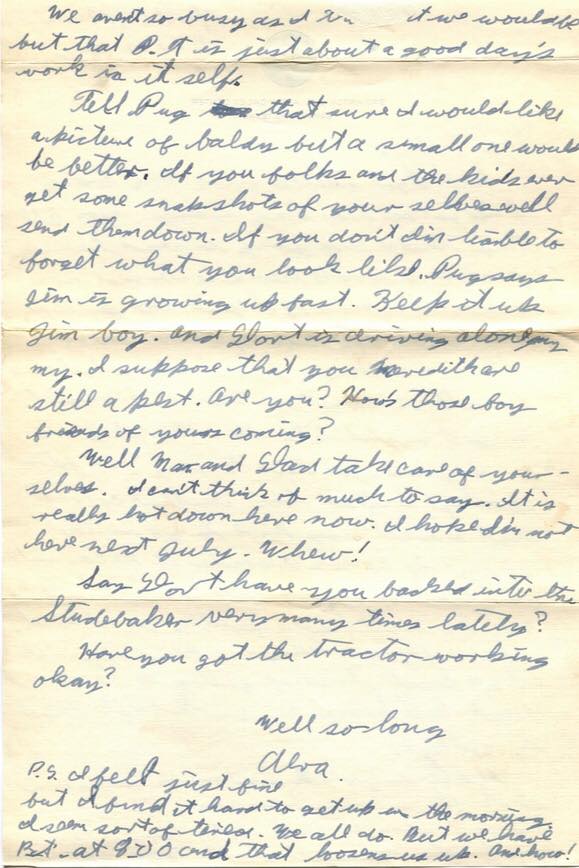 We arent so busy as I it we would be
but that P.T. is just about a good day's
work in it self.
Tell Pug that sure I would like
a picture of baldy but a small one would
be better. If you folks and the kids ever
get some snapshots of your selves well
send them down. If you don't I'm liable to
forget what you look like. Pug says
Jim is growing up fast. Keep it up
Jim boy. And is driving alone my
my. I suppose that you Meredith are
still a pest. Are you? How's those boy
friends of yours coming?
Well Ma and Dad take care of your-
selves. I can't think of much to say. It is
really hot down here now. I hope I'm not
here next July. Whew!
Say have you backed into the
Studebaker very many times lately?
Have you got the tractor working
okay?
Well so long
Alva.
P.S. I feel just fine
but I find it hard to get up in the morning
I seem sort of tired. We all do. But we have
P.T. at and that loosens us up. And how!